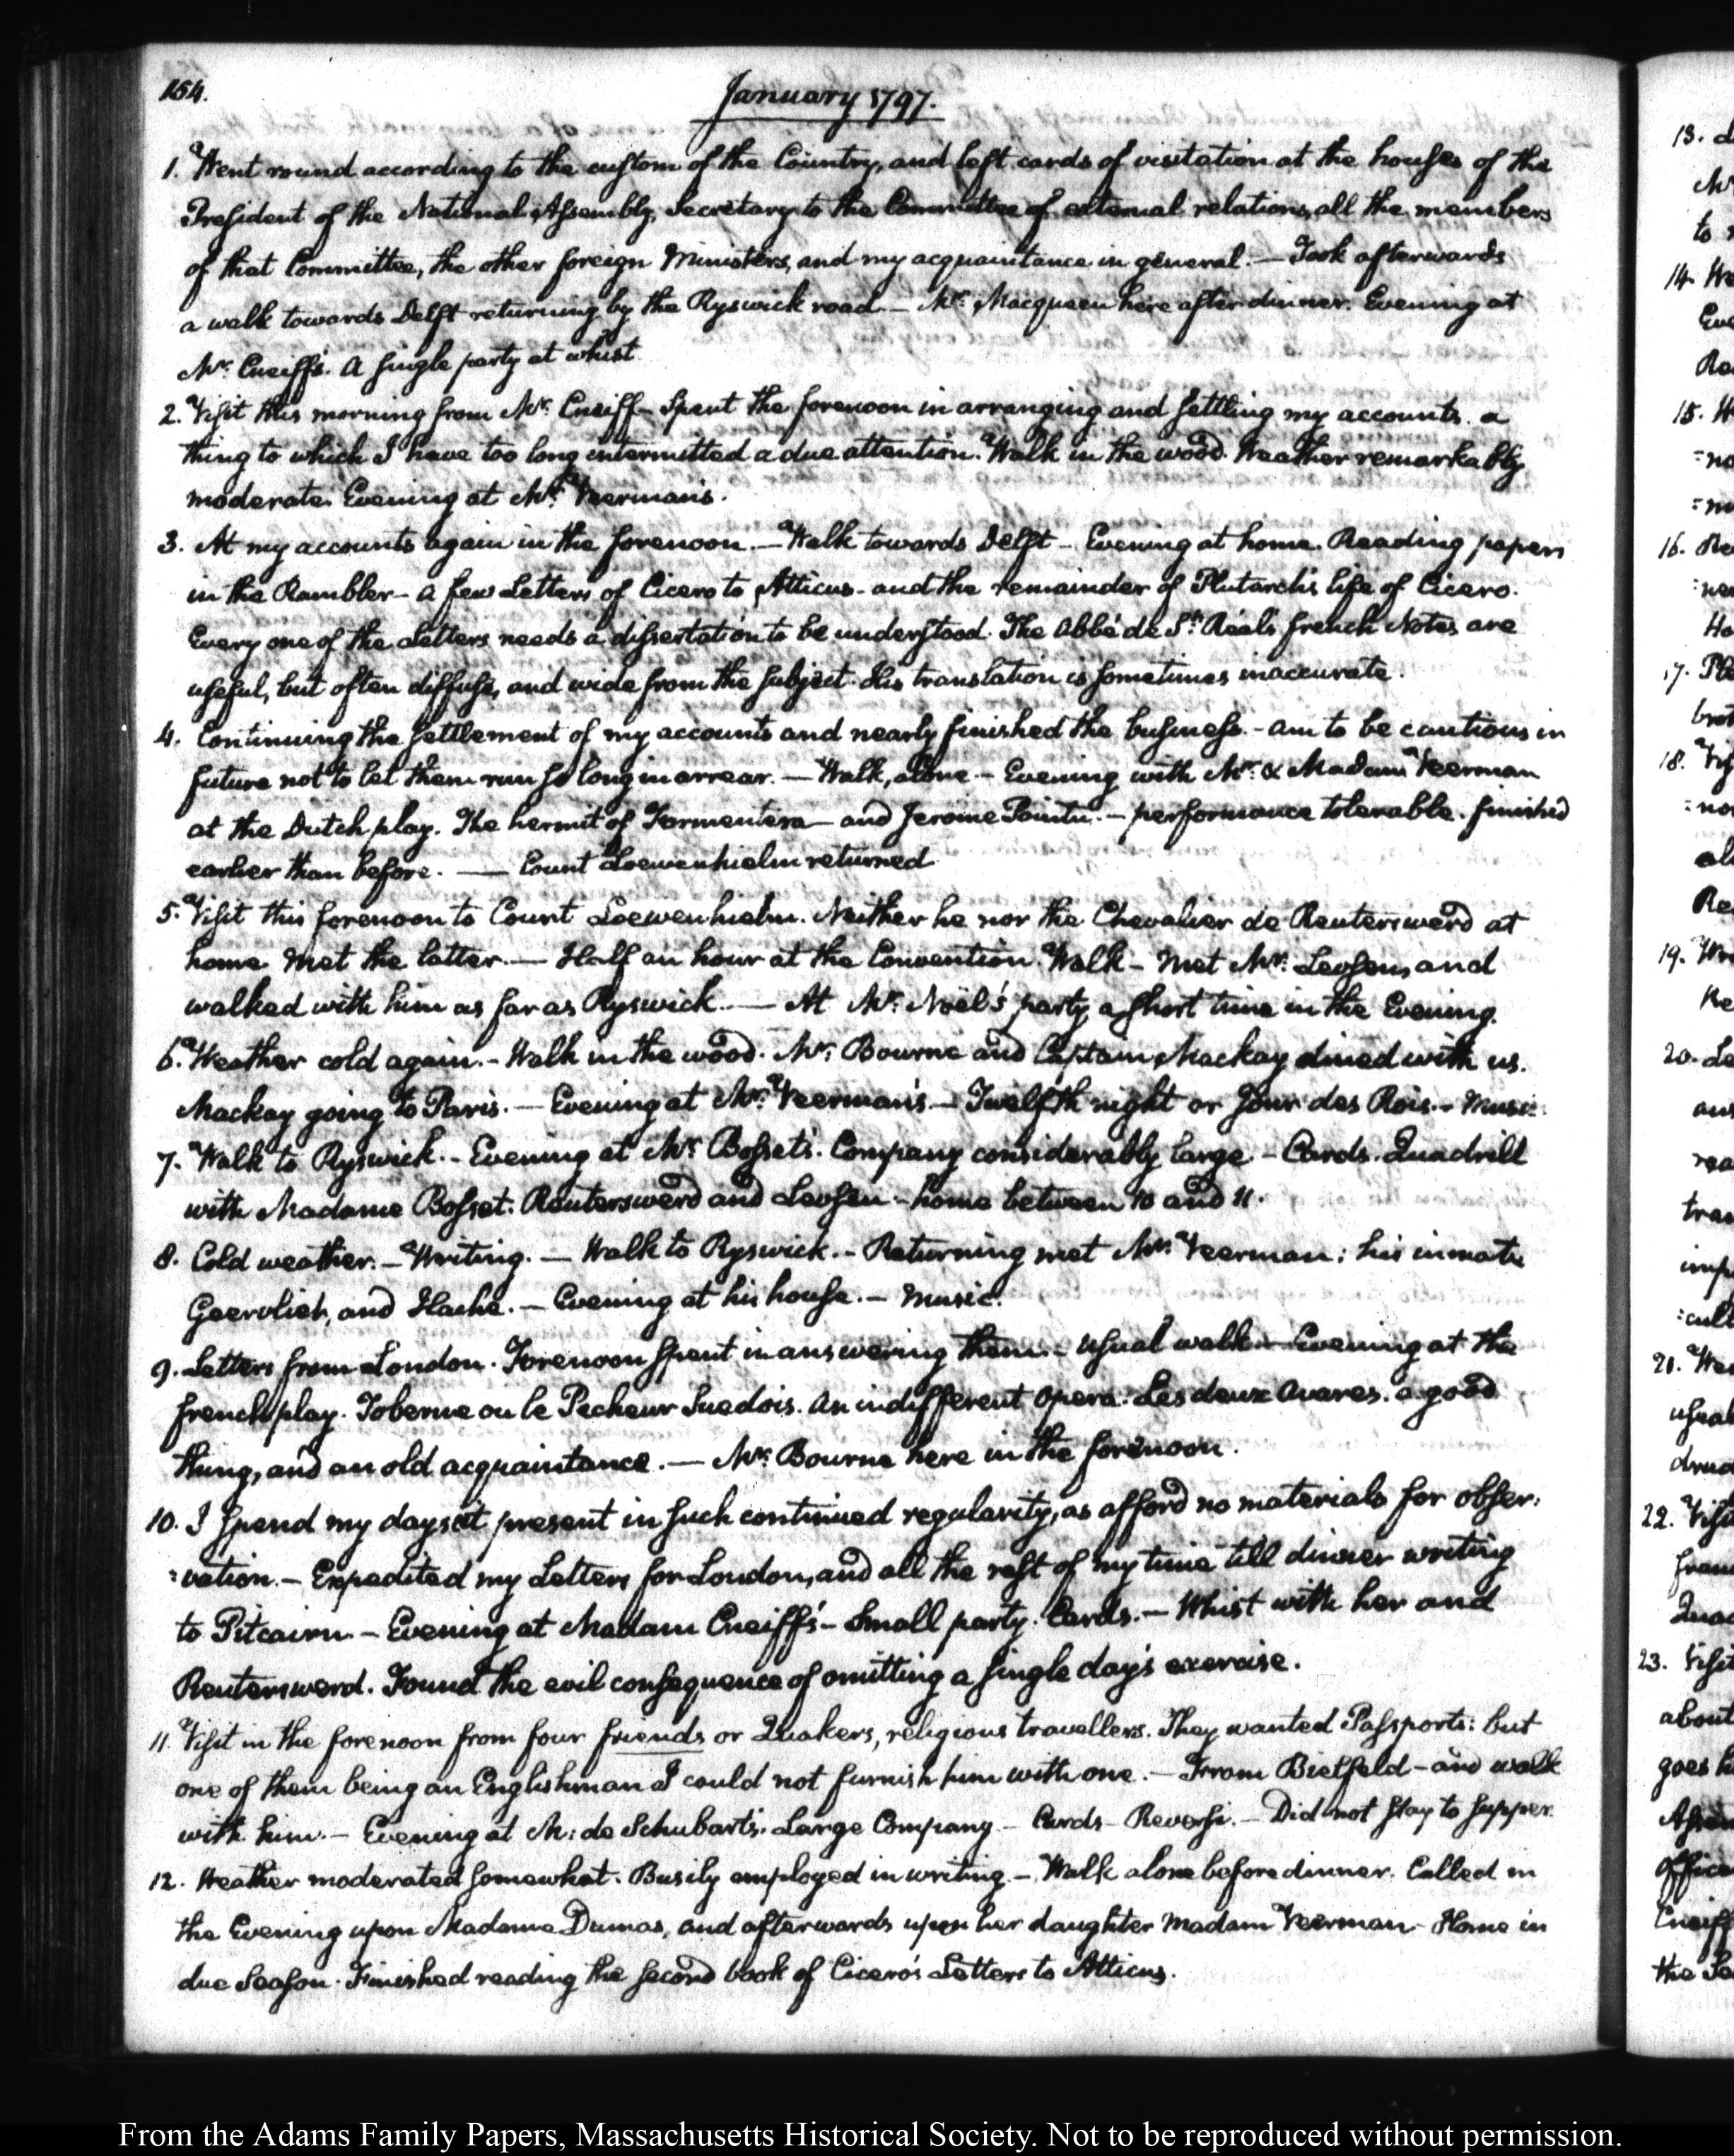 154.
January 1797.
1. Went round according to the custom of the Country, and left cards of visitation at the houses of the
President of the National Assembly, Secretary to the Committee of external relations, all the members
of that Committee, the other foreign Ministers, and my acquaintance in general. — Took afterwards
a walk towards Delft returning by the Ryswick road. — Mr. Macqueen here after dinner. Evening at
Mr. Cneiff's. A single party at whist
2. Visit this morning from Mr. Cneiff — Spent the forenoon in arranging and settling my accounts. a
thing to which I have too long intermitted a due attention. Walk in the wood. Weather remarkably
moderate. Evening at Mr. Veerman's.
3. At my accounts again in the forenoon. — Walk towards Delft — Evening at home. Reading papers
in the Rambler — a few Letters of Cicero to Atticus — and the remainder of Plutarch's life of Cicero.
Every one of the Letters needs a dissertation to be understood. The Abbé de St. Réal's french Notes are
useful, but often diffuse, and wide from the subject. His translation is sometimes inaccurate.
4. Continuing the settlement of my accounts and nearly finished the business. — am to be cautious in
future not to let them run so long in arrear. — Walk, alone — Evening with Mr. & Madam Veerman
at the Dutch play. The hermit of Formentera — and Jerome Pointu. — performance tolerable. finish'd
earlier than before. — Count Loewenhielm returned
5. Visit this forenoon to Count Loewenhielm. Neither he nor the Chevalier de Reutersward at
home. Met the latter. — Half an hour at the Convention. Walk — Met Mr. Levsen, and
walked with him as far as Ryswick. — At Mr. Noël's party a short time in the Evening.
6. Weather cold again. — Walk in the wood. Mr. Bourne and Captain Mackay dined with us.
Mackay going to Paris. — Evening at Mr. Veerman's — Twelfth night or Jour des Rois. — Music.
7. Walk to Ryswick. — Evening at Mr. Bosset's. Company considerably large — Cards. Quadrill
with Madame Bosset. Reutersward and Levsen — home between 10 and 11.
8. Cold weather. — Writing. — Walk to Ryswick. — Returning met Mr. Veerman: his inmate
Geervliet, and Hache. — Evening at his house. — Music.
9. Letters from London. Forenoon spent in answering them. — usual walk — Evening at the
french play. Toberne ou le Pecheur Suedois. An indifferent Opera. Les deux Avares. a good
thing, and an old acquaintance. — Mr. Bourne here in the forenoon.
10. I spend my days at present in such continued regularity, as afford no materials for obser:
:vation. — Expedited my Letters for London, and all the rest of my time till dinner writing
to Pitcairn. — Evening at Madam Cneiff's — Small party. Cards. — Whist with her and
Reutersward. Found the evil consequence of omitting a single day's exercise.
11. Visit in the forenoon from four friends or Quakers, religious travellers. They wanted Passports: but
one of them being an Englishman I could not furnish him with one. — From Bielfeld — and walk
with him. — Evening at M: de Schubart's. Large Company. — Cards — Reversi. — Did not stay to supper.
12. Weather moderated somewhat. Busily employed in writing. — Walk alone before dinner. Called in
the Evening upon Madame Dumas, and afterwards upon her daughter Madam Veerman — Home in
due Season. Finished reading the second book of Cicero's Letters to Atticus.
From the Adams Family Papers, Massachusetts Historical Society. Not to be reproduced without permission.